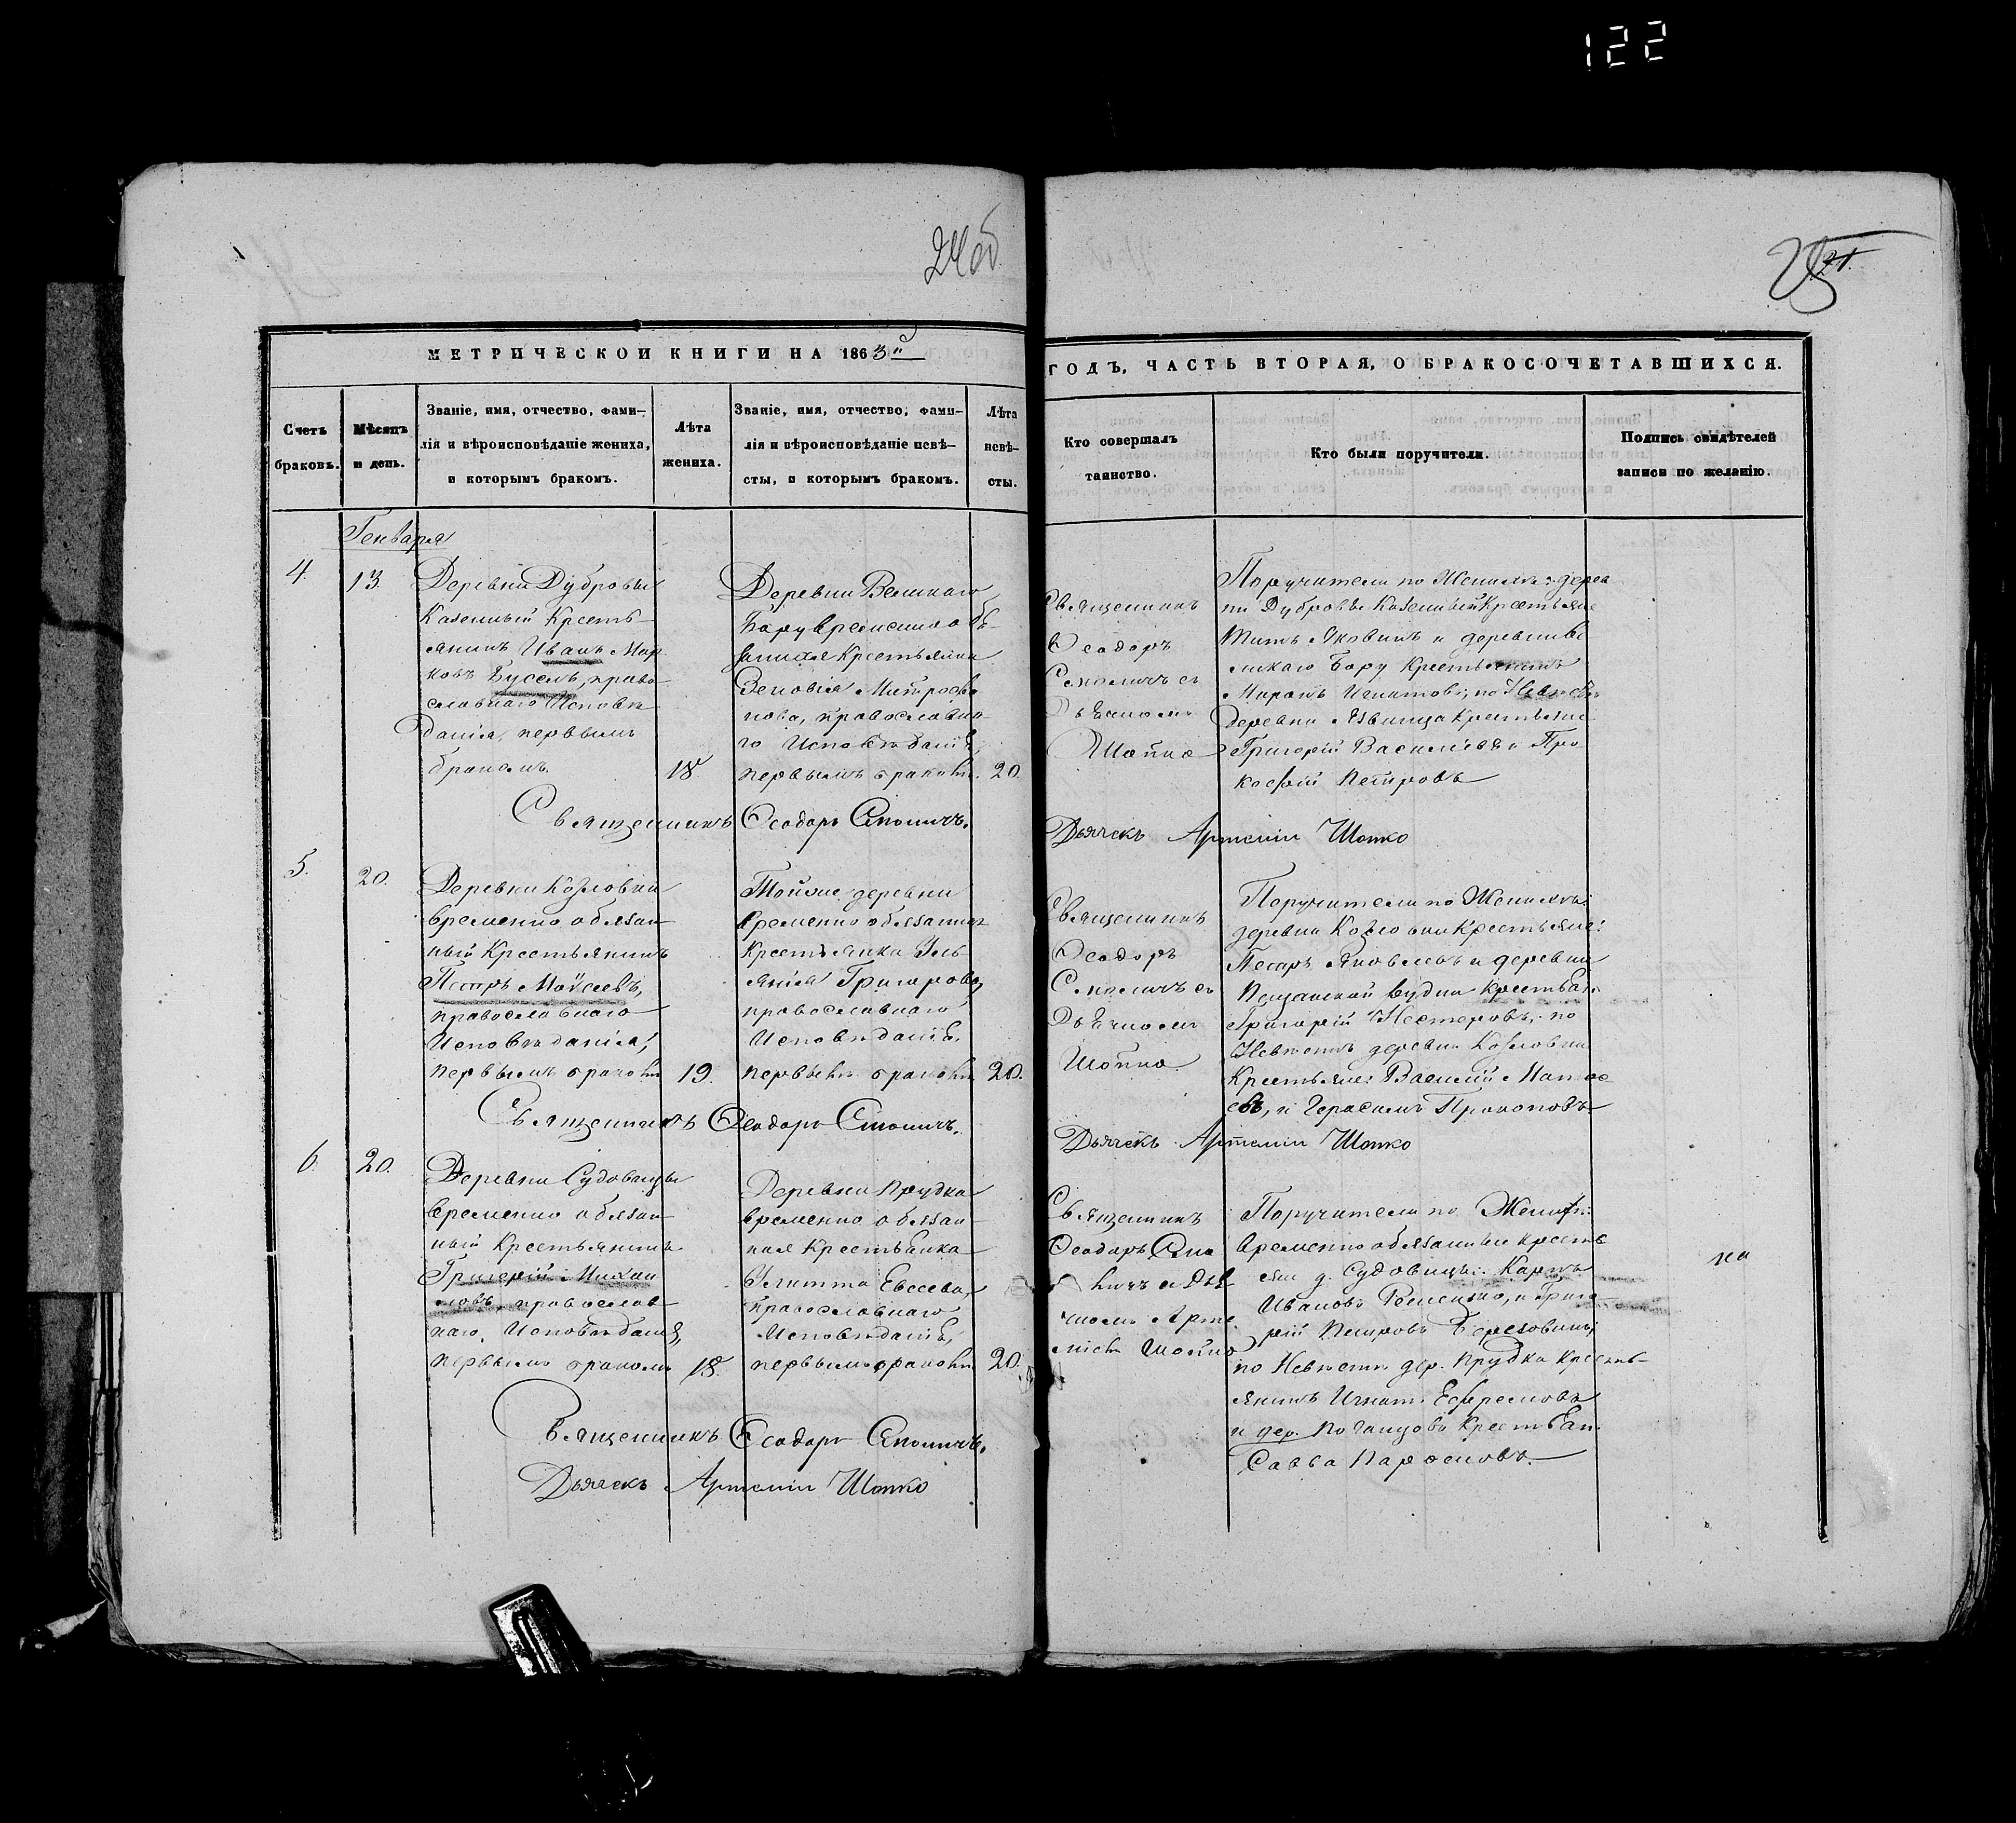 122
24 об
25
21.
МЕТРИЧЕСКОЙ КНИГИ НА 1863й
ГОДЪ, ЧАСТЬ ВТОРАЯ, О БРАКОСОЧЕТАВШИХСЯ.
Счетъ
браковъ.
Мѣсяцъ
и день.
Званіе, имя, отчество, фами-
лія и вѣроисповѣданіе жениха,
и которымъ бракомъ.
Лѣта
жениха.
Званіе, имя, отчество, фами-
лія и вѣроисповѣданіе невѣ-
сты, и которымъ бракомъ.
Лѣта
невѣ-
сты.
Кто совершалъ
таинство.
Кто были поручители.
Подпись свидѣтелей
записи по желанію.
Генваря
4.
13
Деревни Дубровы
Казенный Кресть-
янинъ Иванъ Мар
ковъ Бусель, право
славнаго Исповѣ
данія, первымъ
бракомъ.
18.
Деревни Великаго
Бору временно обя-
занная Крестьянка
Зеновія Митрофа
нова, православна-
го Исповѣданія,
первымъ бракомъ.
20.
Священникъ
Ѳеодоръ
Смоличъ съ
Дьячкомъ
Шопко
Поручители по Женихѣ: дерев
ни Дубровы Казенный Крестьяне
Титъ Яковинъ и деревни Ве
ликаго Бору Крестьянинъ
Миронъ Игнатовъ; по Невѣстѣ
деревни Язвинца Крестьяне
Григорій Василіевъ и Про
кофій Петровъ
Священникъ Ѳеодоръ Смоличъ.
Дьячекъ Артемій Шопко
5.
20.
Деревни Козловки
временно обязан-
ный Крестьянинъ
Петръ Моѵсеевъ,
православнаго
Исповѣданія,
первымъ бракомъ
19.
Тойже деревни
временно обязанная
Крестьянка Уль-
янія Григорова,
православнаго
Исповѣданія,
первымъ бракомъ
20.
Священникъ
Ѳеодоръ
Смоличъ съ
Дьячкомъ
Шопко
Поручители по Женихѣ:
деревни Козловки Крестьяне:
Петръ Яковлевъ и деревни
Песчанской Рудни Крестьян:
Григорій Нестеровъ; по
Невѣстѣ деревни Козловки
Крестьяне Василій Мат
евъ, и Герасимъ Прокоповъ
Священникъ Ѳеодоръ Смоличъ.
Дьячекъ Артемій Шопко
6.
20.
Деревни Судовицы
временно обязан-
ный Крестьянинъ
Григорій Михаи
ловъ, православ-
наго Исповѣданія,
первымъ бракомъ
18.
Деревни Прудка
временно обязан-
ная Крестьянка
Улитта Евсеева,
православнаго
Исповѣданія,
первымъ бракомъ
20.
Священникъ
Ѳеодоръ Смо
личъ и Дья
чкомъ Арте
міемъ Шопко
Поручители по Женихѣ:
временно обязанные кресть
яне д. Судовицы: Карпъ
Ивановъ и Григо
рій Петровъ Березовинъ;
по Невѣстѣ дер. Прудка Кресть-
янинъ Игнатъ Ефремовъ
и дер. Крестьян.
Савва Парфеновъ.
на
Священникъ Ѳеодоръ Смоличъ.
Дьячекъ Артемій Шопко